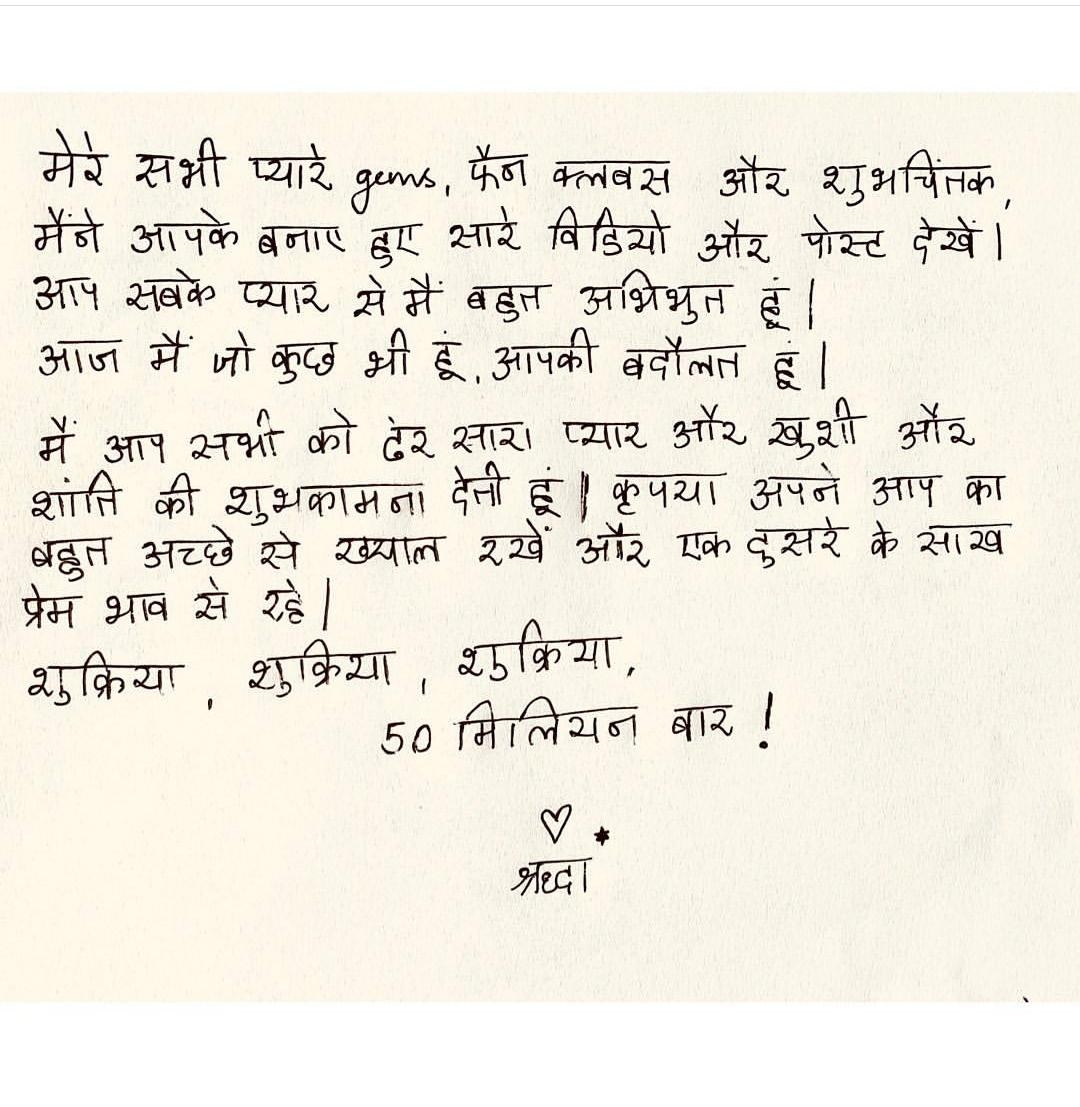 मेरे सभी प्यारे gems, फैन क्लबस और शुभचिंतक,
मैंने आपके बनाए हुए सारे विडियो और पोस्ट देखें।
आप सबके प्यार से मैं बहुत अभिभुत हूं।
आज मैं जो कुछ भी हूं, आपकी बदौलत हूं।
मैं आप सभी को ढेर सारा प्यार और खुशी और
शांति की शुभकामना देती हूं। कृपया अपने आप का
बहुत अच्छे से ख्याल रखें और एक दुसरे के साख
प्रेम भाव से रहे।
शुक्रिया, शुक्रिया, शुक्रिया,
50 मिलियन बार!
श्रध्दा